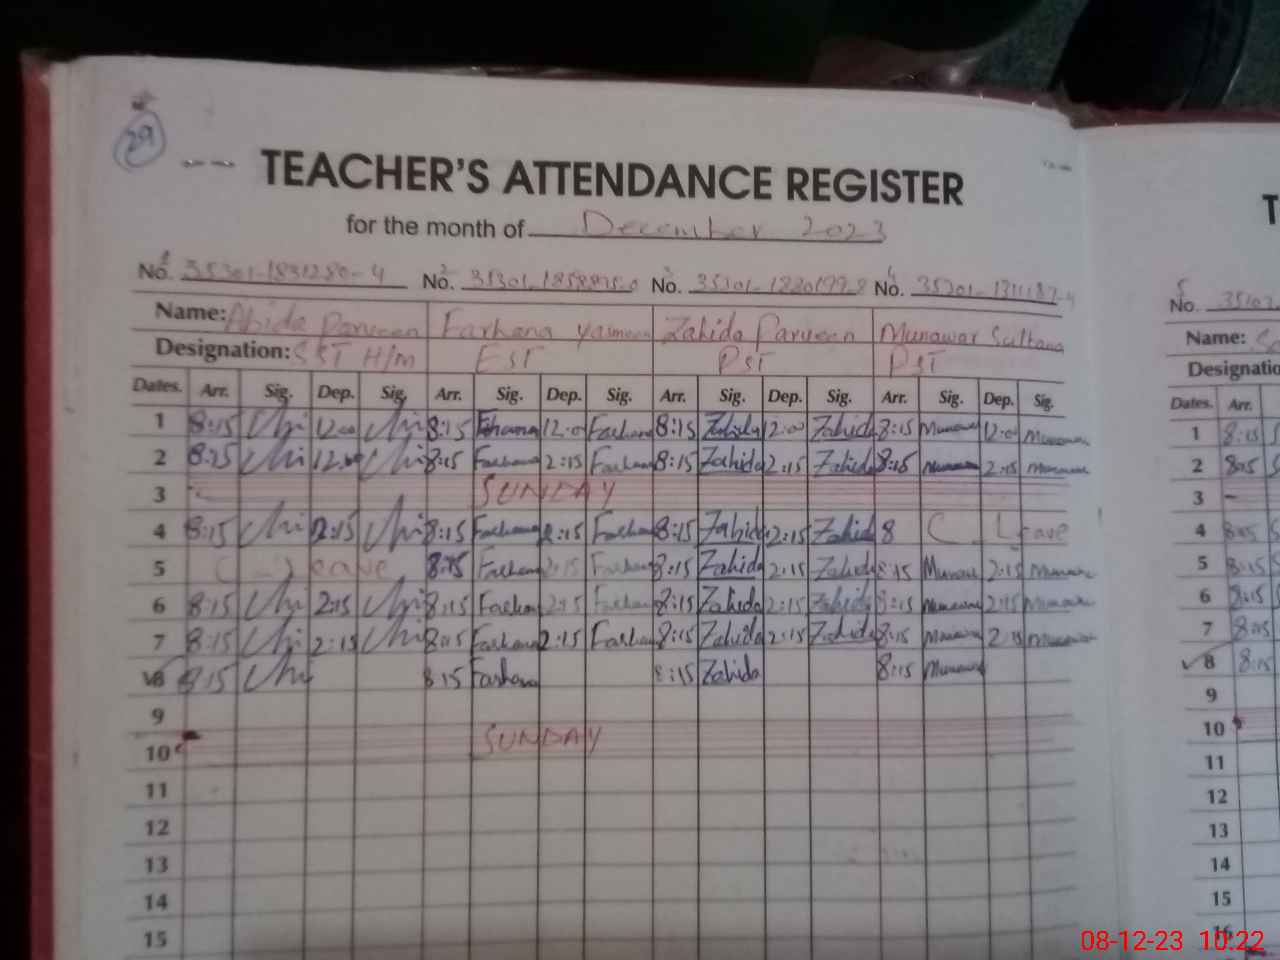 29
TEACHER'S ATTENDANCE REGISTER
for the month of December 2023
1 2 3 4
No. 35301-1831280-4 No. 35301-1858875-0 No. 35301- No. 35301-
Name: Abida Parveen Farhana Yasmeen Zahida Parveen Munawar Sultana
Designation: SST H/m EST PST PST
Dates. Arr. Sig. Dep. Sig. Arr. Sig. Dep. Sig. Arr. Sig. Dep. Sig. Arr. Sig. Dep. Sig.
1 8:15 12:00 8:15 Farhana 12:00 Farhana 8:15 Zahida 12:00 Zahida 8:15 Munawar 12:00 Munawar
2 8:15 12:00 8:15 Farhana 2:15 Farhana 8:15 Zahida 2:15 Zahida 8:15 Munawar 2:15 Munawar
3 SUNDAY
4 8:15 2:15 8:15 Farhana 2:15 Farhana 8:15 Zahida 2:15 Zahida 8 C Leave
5 C Leave 8:15 Farhana 2:15 Farhana 8:15 Zahida 2:15 Zahida 8:15 Munawar 2:15 Munawar
6 8:15 2:15 8:15 Farhana 2:15 Farhana 8:15 Zahida 2:15 Zahida 8:15 Munawar 2:15 Munawar
7 8:15 2:15 8:15 Farhana 2:15 Farhana 8:15 Zahida 2:15 Zahida 8:15 Munawar 2:15 Munawar
8 8:15 8:15 Farhana 8:15 Zahida 8:15 Munawar
9
10 SUNDAY
11
12
13
14
15
T
5
No.
Name:
Designatio
Dates. Arr.
1 8:15
2 8:15
3
4 8:15
5 8:15
6 8:15
7 8:15
8 8:15
9
10
11
12
13
14
15
16
08-12-23 10:22